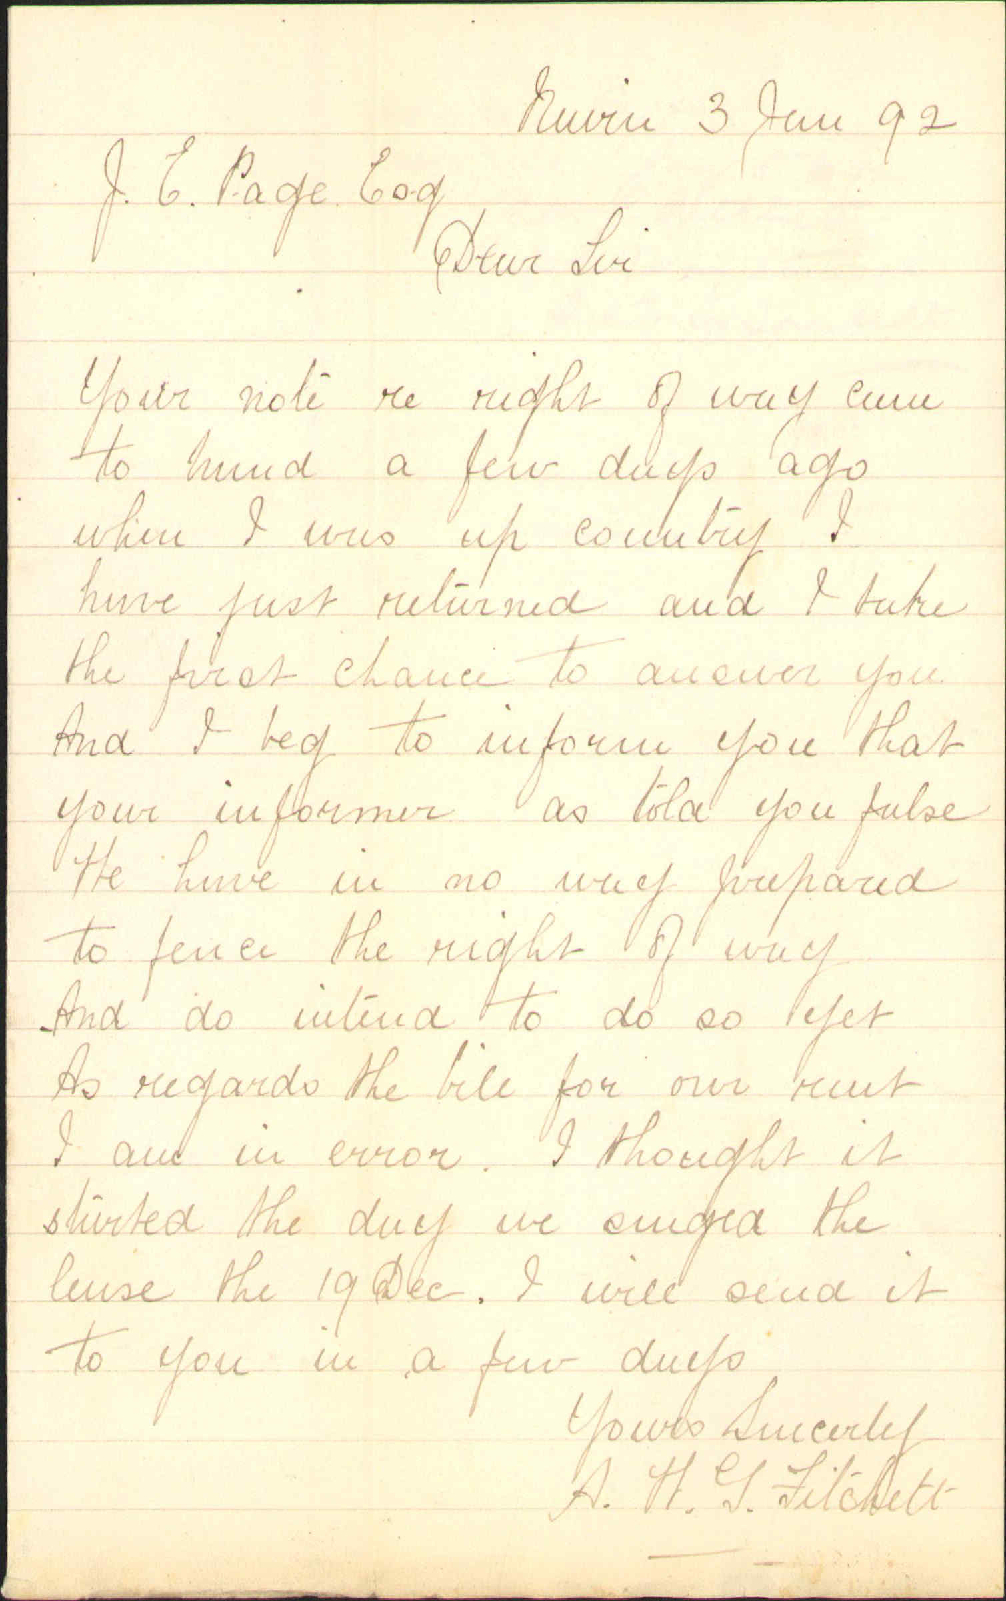 3 Jan 92
J. E. Page Esq
Dear Sir
Your note re right of way came
to hand a few days ago
when I was up country I
have just returned and I take
the first chance to answer you
And I beg to inform you that
your informer as told you false
We have in no way prepared
to fence the right of way
And do intend to do so yet
As regards the bill for our rent
I am in error. I thought it
started the day we singed the
lease the 19 Dec. I will send it
to you in a few days
Yours Sincerley
A. H. G. Fitchett